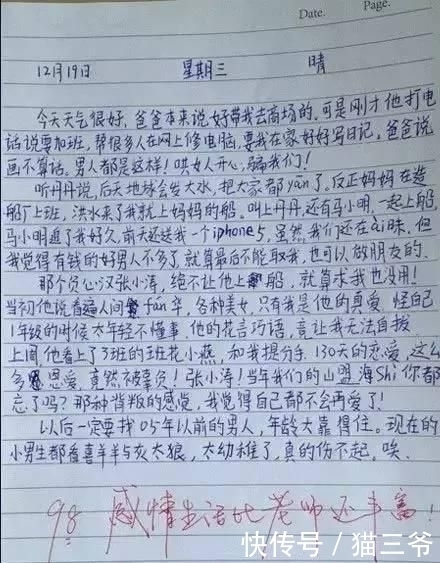 Date.
Page.
12月19日 星期三 晴
今天天气很好,爸爸本来说好带我去商场的,可是刚才他打电
话说要加班,帮很多人在网上修电脑,要我在家好好写日记,爸爸说
画不算话。男人都是这样!哄女人开心,骗我们!
听丹丹说,后天地球会发大水,把大家都yān了。反正妈妈在造
船厂上班,洪水来了我就上妈妈的船。叫上丹丹,还有马小明,一起上船,
马小明追了我好久,前天还送我一个iphone5,虽然我们还在ài昧,但
我觉得有钱的好男人不多了,就算最后不能取我,也可以做朋友的。
那个负心汉张小涛,绝不让他上船,就算求我也没用!
当初他说看遍人间fán华,各种美女,只有我是他的真爱,怪自己
1年级的时候太年轻不懂事,他的花言巧语,竟让我无法自拔
上周,他看上了3班的班花小燕,和我提分手,130天的恋爱,这么
多恩爱,竟然被辜负!张小涛!当年我们的山盟海Shì你都
忘了吗?那种背叛的感觉,我觉得自己都不会再爱了!
以后一定要找05年以前的男人,年龄大靠得住。现在的
小男生都看喜羊羊与灰太狼,太幼稚了,真的伤不起,唉.
98 感情生活比老师还丰富!
快传号/猫三爷